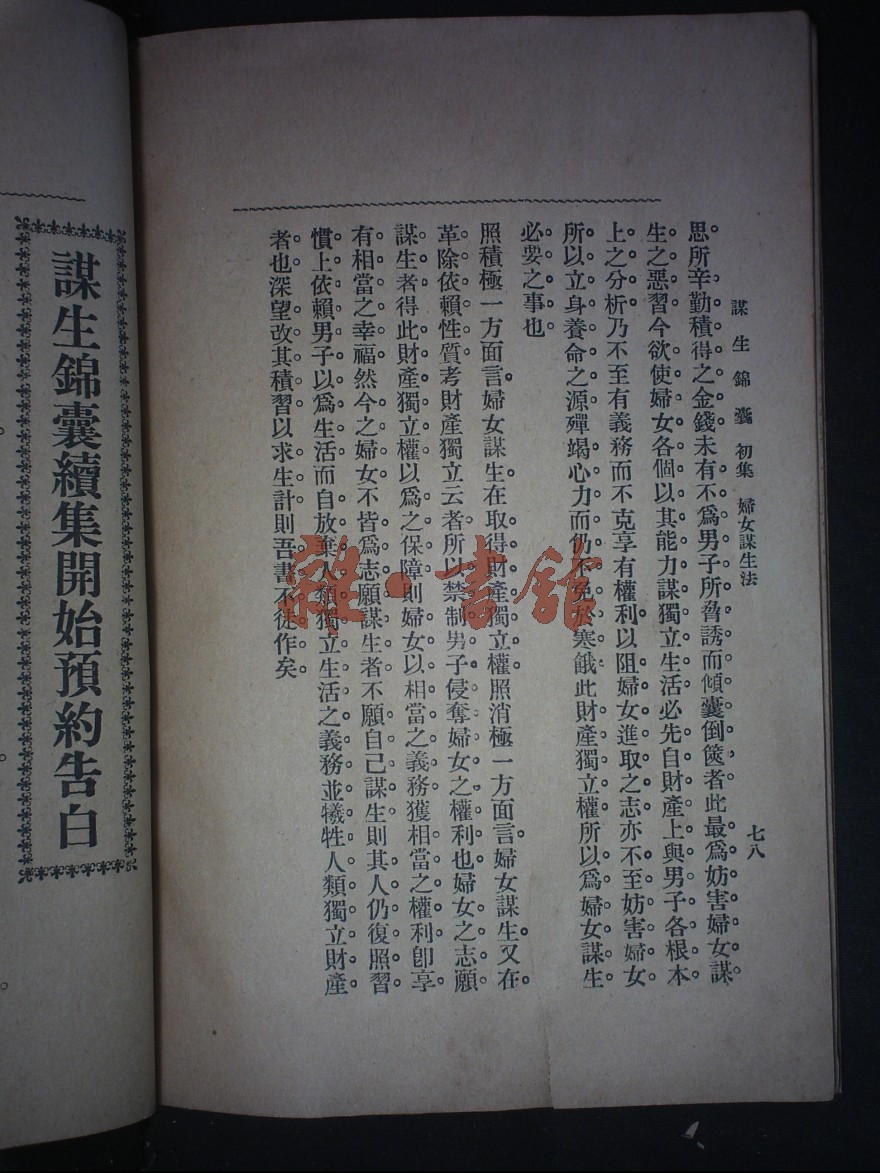 謀生錦囊 初集 婦女謀生法 七八
思所辛勤積得之金錢未有不爲男子所脅誘而傾囊倒篋者此最爲妨害婦女謀
生之惡習今欲使婦女各個以其能力謀獨立生活必先自財產上與男子各根本
上之分析乃不至有義務而不克享有權利以阻婦女進取之志亦不至妨害婦女
所以立身養命之源殫竭心力而仍不免於寒餓此財產獨立權所以爲婦女謀生
必要之事也
照積極一方面言婦女謀生在取得財產獨立權照消極一方面言婦女謀生又在
革除依賴性質考財產獨立云者所以禁制男子侵奪婦女之權利也婦女之志願
謀生者得此財產獨立權以爲之保障則婦女以相當之義務獲相當之權利卽享
有相當之幸福然今之婦女不皆爲志願謀生者不願自己謀生則其人仍復照習
慣上依賴男子以爲生活而自放棄人類獨立生活之義務並犧牲人類獨立財產
者也深望改其積習以求生計則吾書不徒作矣
謀生錦囊續集開始預約告白
雜·書館